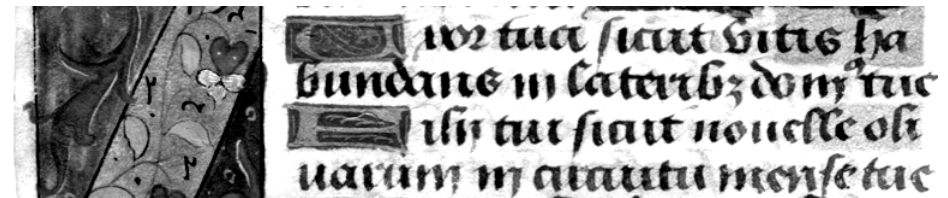 Uxor tua sicut vitis ha
bundans in lateribꝫ domꝰ tue
Filij tui sicut nouelle oli
uarum in circuitu mense tue